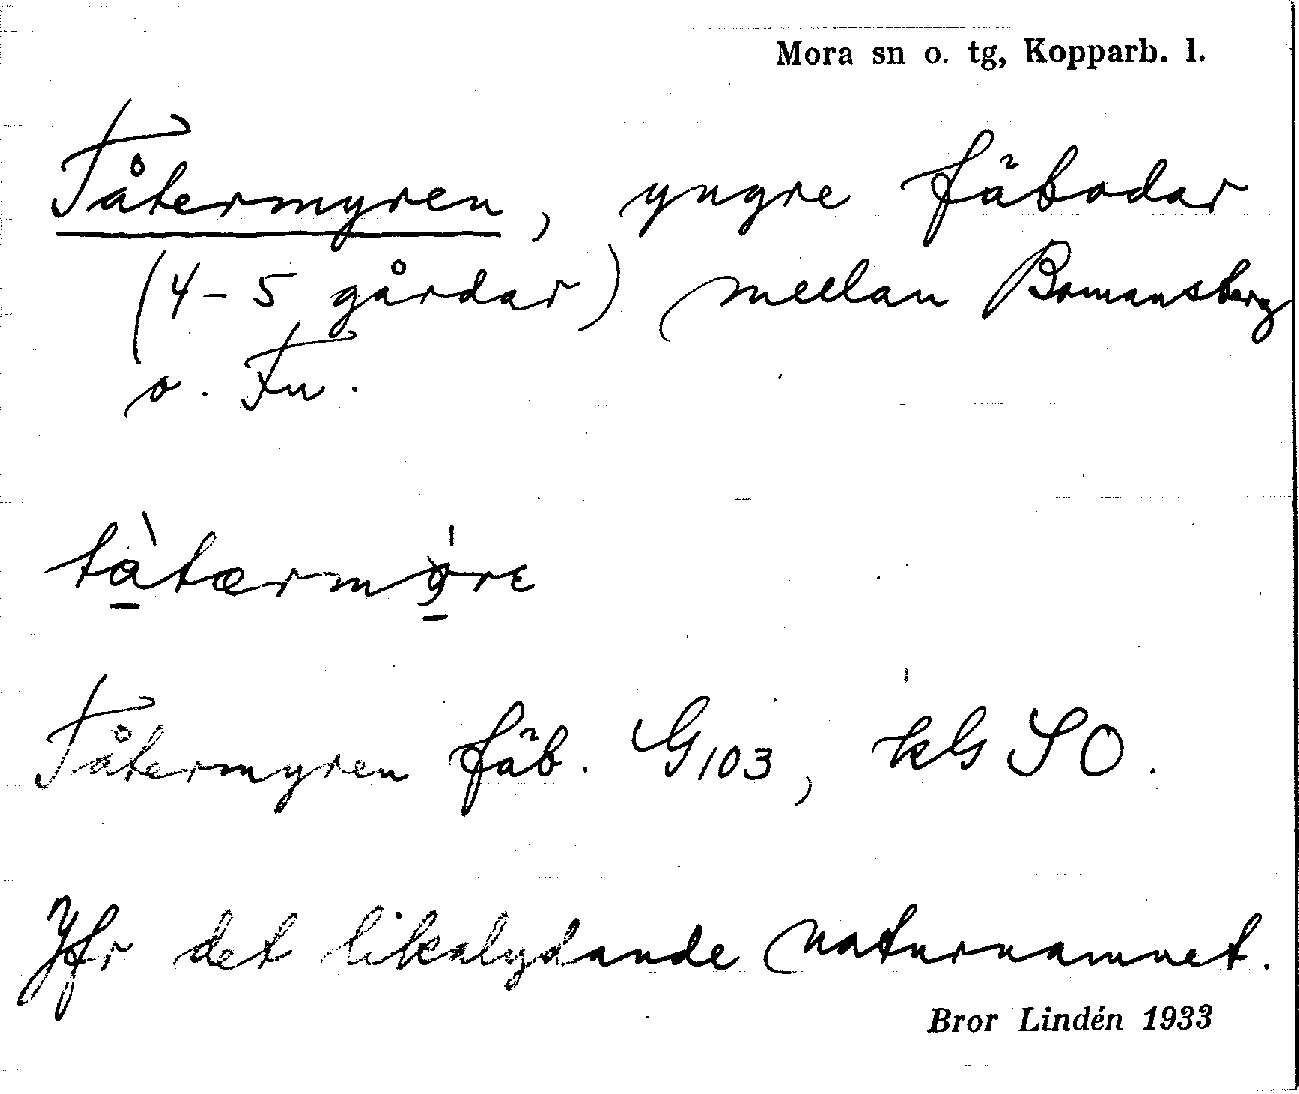 Mora sn o. tg, Kopparb. l.
Tåtermyren, yngre fäbodar
(4-5 gårdar) mellan Bomansberg
o. Fu.
tàtærmýrɛ
Tåtermyren fäb. G103, kls SO.
Jfr det likalydande naturnamnet.
Bror Lindén 1933